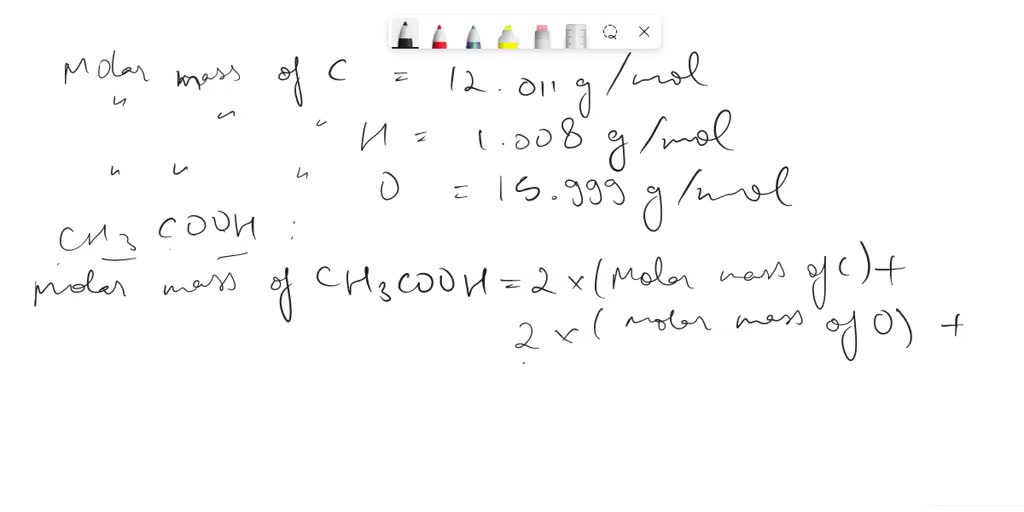 Molar mass of C = 12.011 g/mol
" " " H = 1.008 g/mol
" " " O = 15.999 g/mol
CH3 COOH :
Molar mass of CH3COOH = 2 × (Molar mass of C) +
2 × (molar mass of O) +